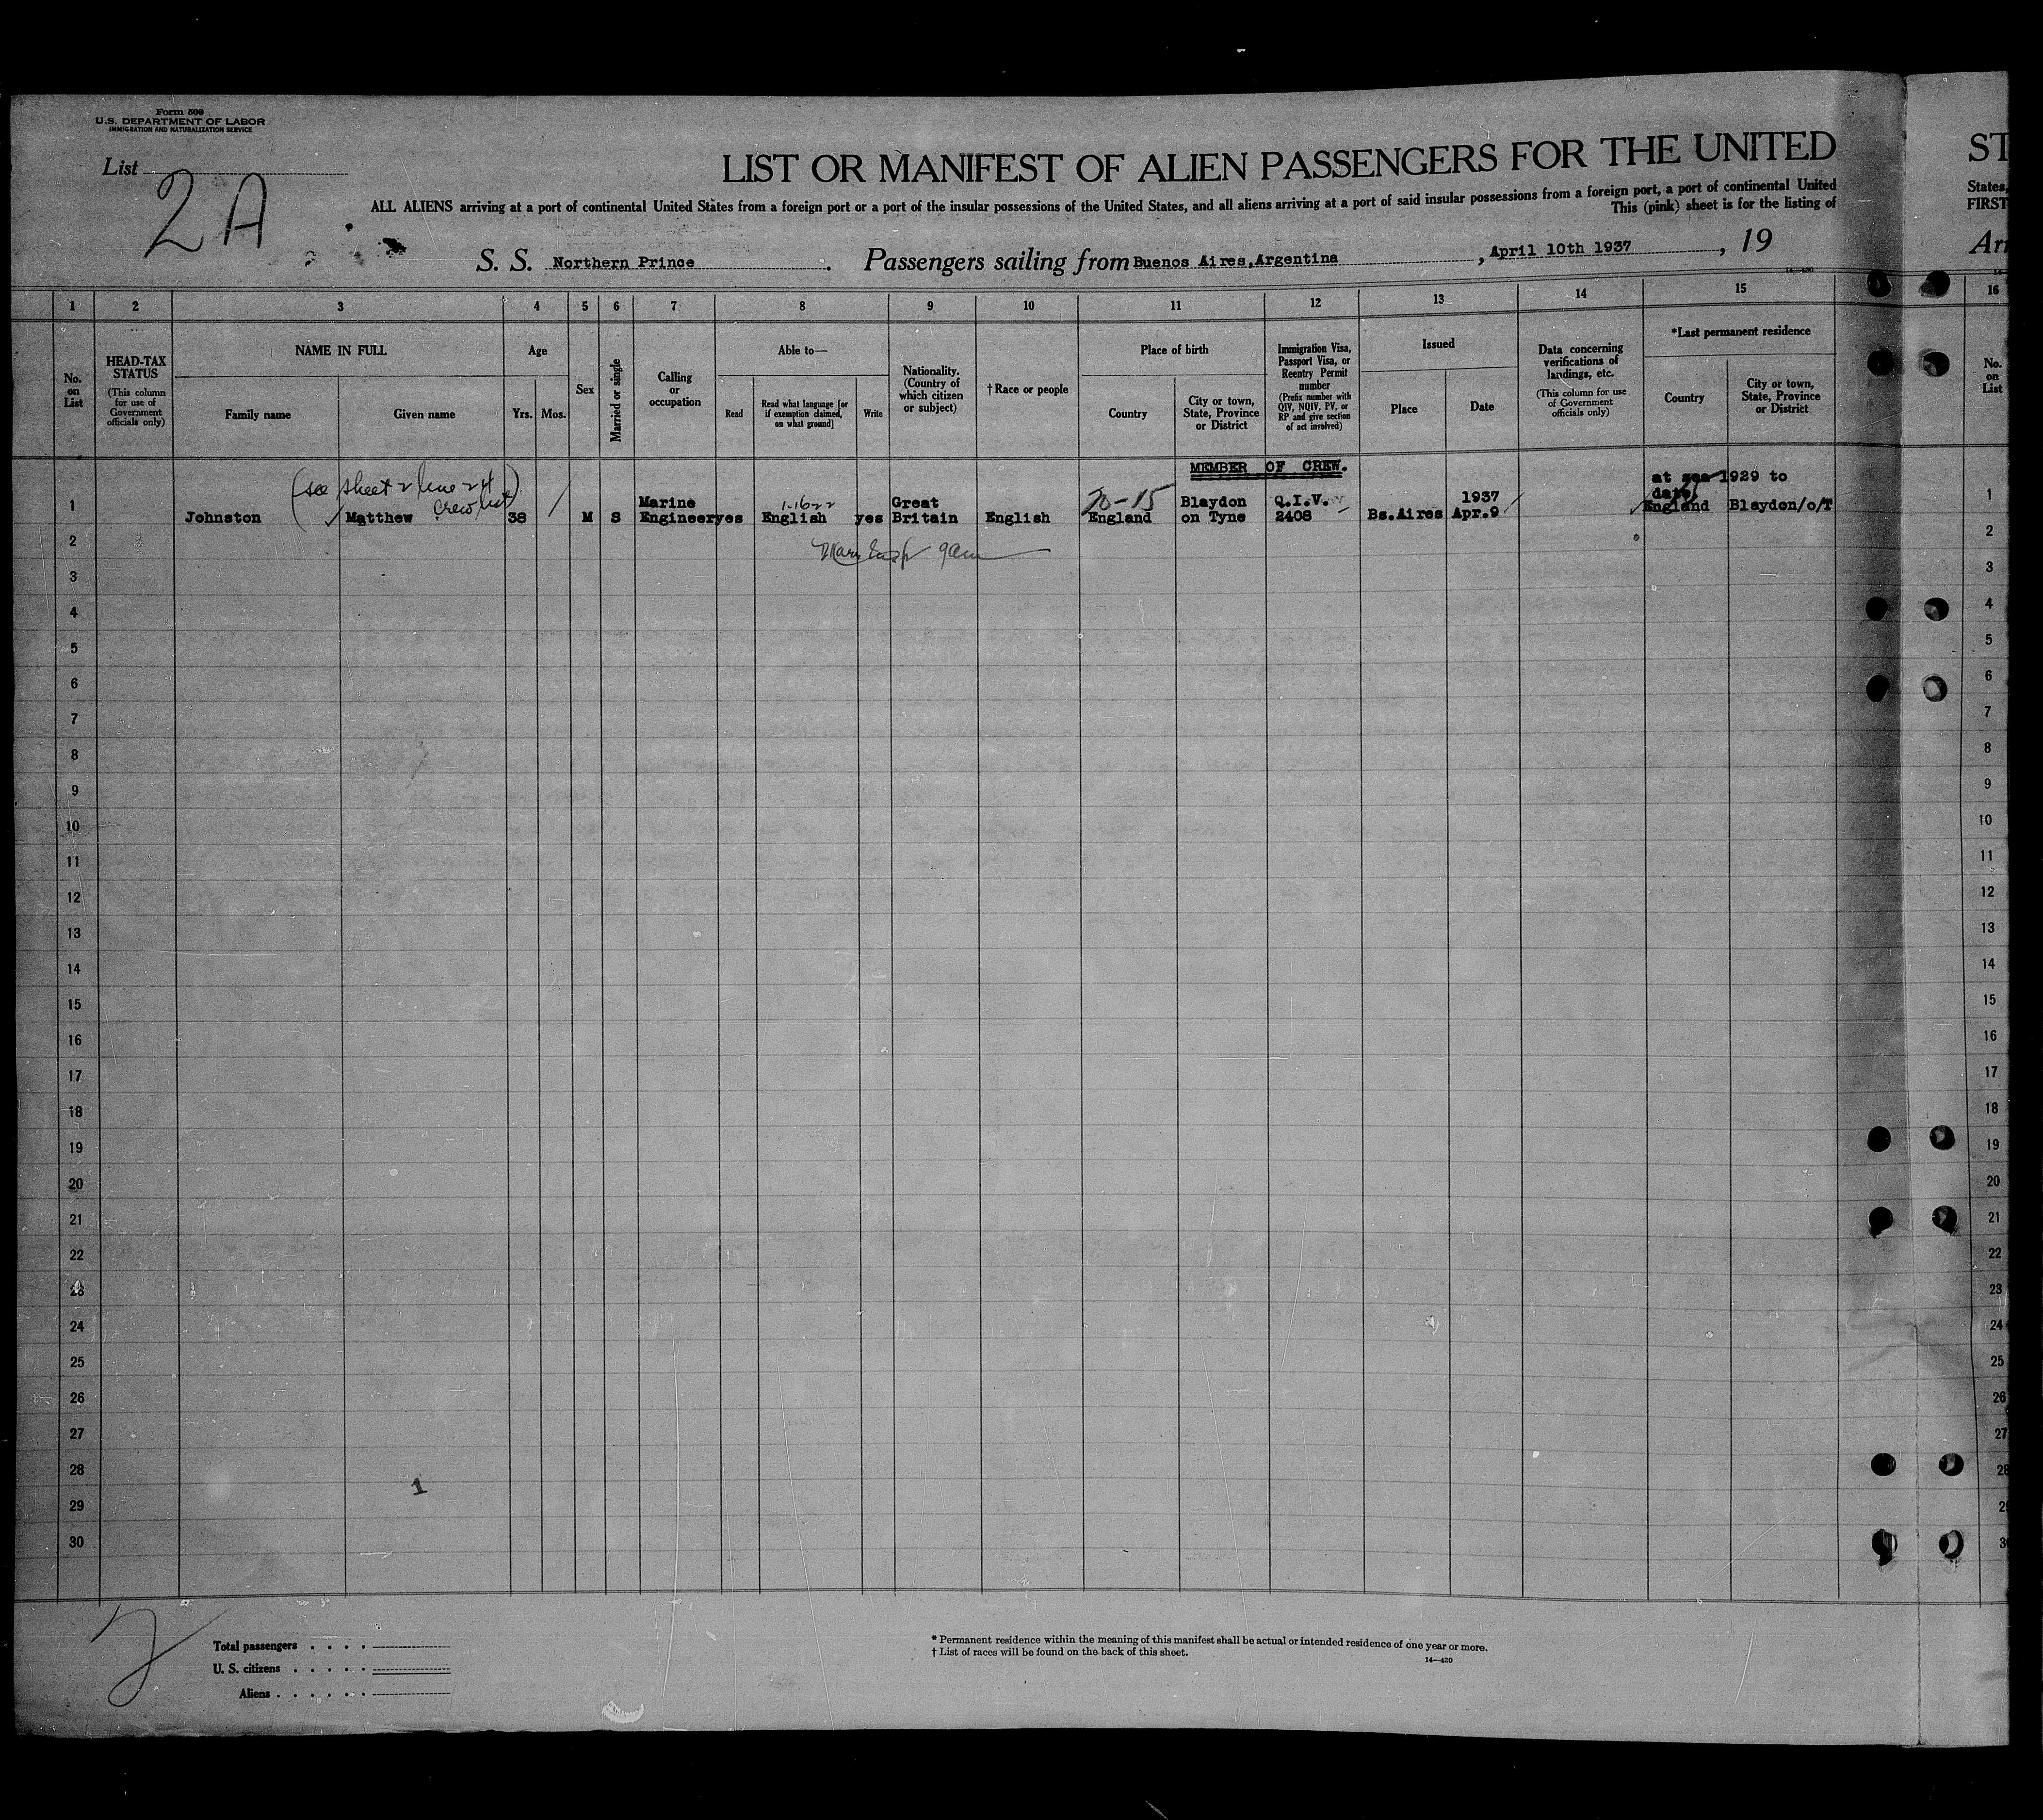 Form 500
U.S. DEPARTMENT OF LABOR
IMMIGRATION AND NATURALIZATION SERVICE
List
2A
LIST OR MANIFEST OF ALIEN PASSENGERS FOR THE UNITED
ST
ALL ALIENS arriving at a port of continental United States from a foreign port or a port of the insular possessions of the United States, and all aliens arriving at a port of said insular possessions from a foreign port, a port of continental United
States,
This (pink) sheet is for the listing of
FIRST
S. S. Northern Prince. Passengers sailing from Buenos Aires,Argentina, April 10th 1937, 19
Arr
1 2 3 4 5 6 7 8 9 10 11 12 13 14 15 16
No. on List
HEAD-TAX STATUS
(This column for use of Government officials only)
NAME IN FULL
Family name
Given name
Age
Yrs. Mos.
Sex
Married or single
Calling or occupation
Able to—
Read
Read what language [or if exemption claimed, on what ground]
Write
Nationality. (Country of which citizen or subject)
† Race or people
Place of birth
Country
City or town, State, Province or District
Immigration Visa, Passport Visa, or Reentry Permit number
(Prefix number with QIV, NQIV, PV, or RP and give section of act involved)
Issued
Place
Date
Data concerning verifications of landings, etc.
(This column for use of Government officials only)
*Last permanent residence
Country
City or town, State, Province or District
No. on List
MEMBER OF CREW.
(see sheet 2 line 24 crew list)
at sea 1929 to date
1 Johnston Matthew 38 M S Marine Engineer yes English yes Great Britain English England Blaydon on Tyne Q.I.V. 2408 Bs.Aires 1937 Apr.9 England Blaydon/o/T 1
1-1622
20-15
2 2
3 3
4 4
5 5
6 6
7 7
8 8
9 9
10 10
11 11
12 12
13 13
14 14
15 15
16 16
17 17
18 18
19 19
20 20
21 21
22 22
23 23
24 24
25 25
26 26
27 27
28 28
1
29 2
30 3
2
Total passengers . . . .
U. S. citizens . . . . .
Aliens . . . . . .
* Permanent residence within the meaning of this manifest shall be actual or intended residence of one year or more.
† List of races will be found on the back of this sheet.
14—420